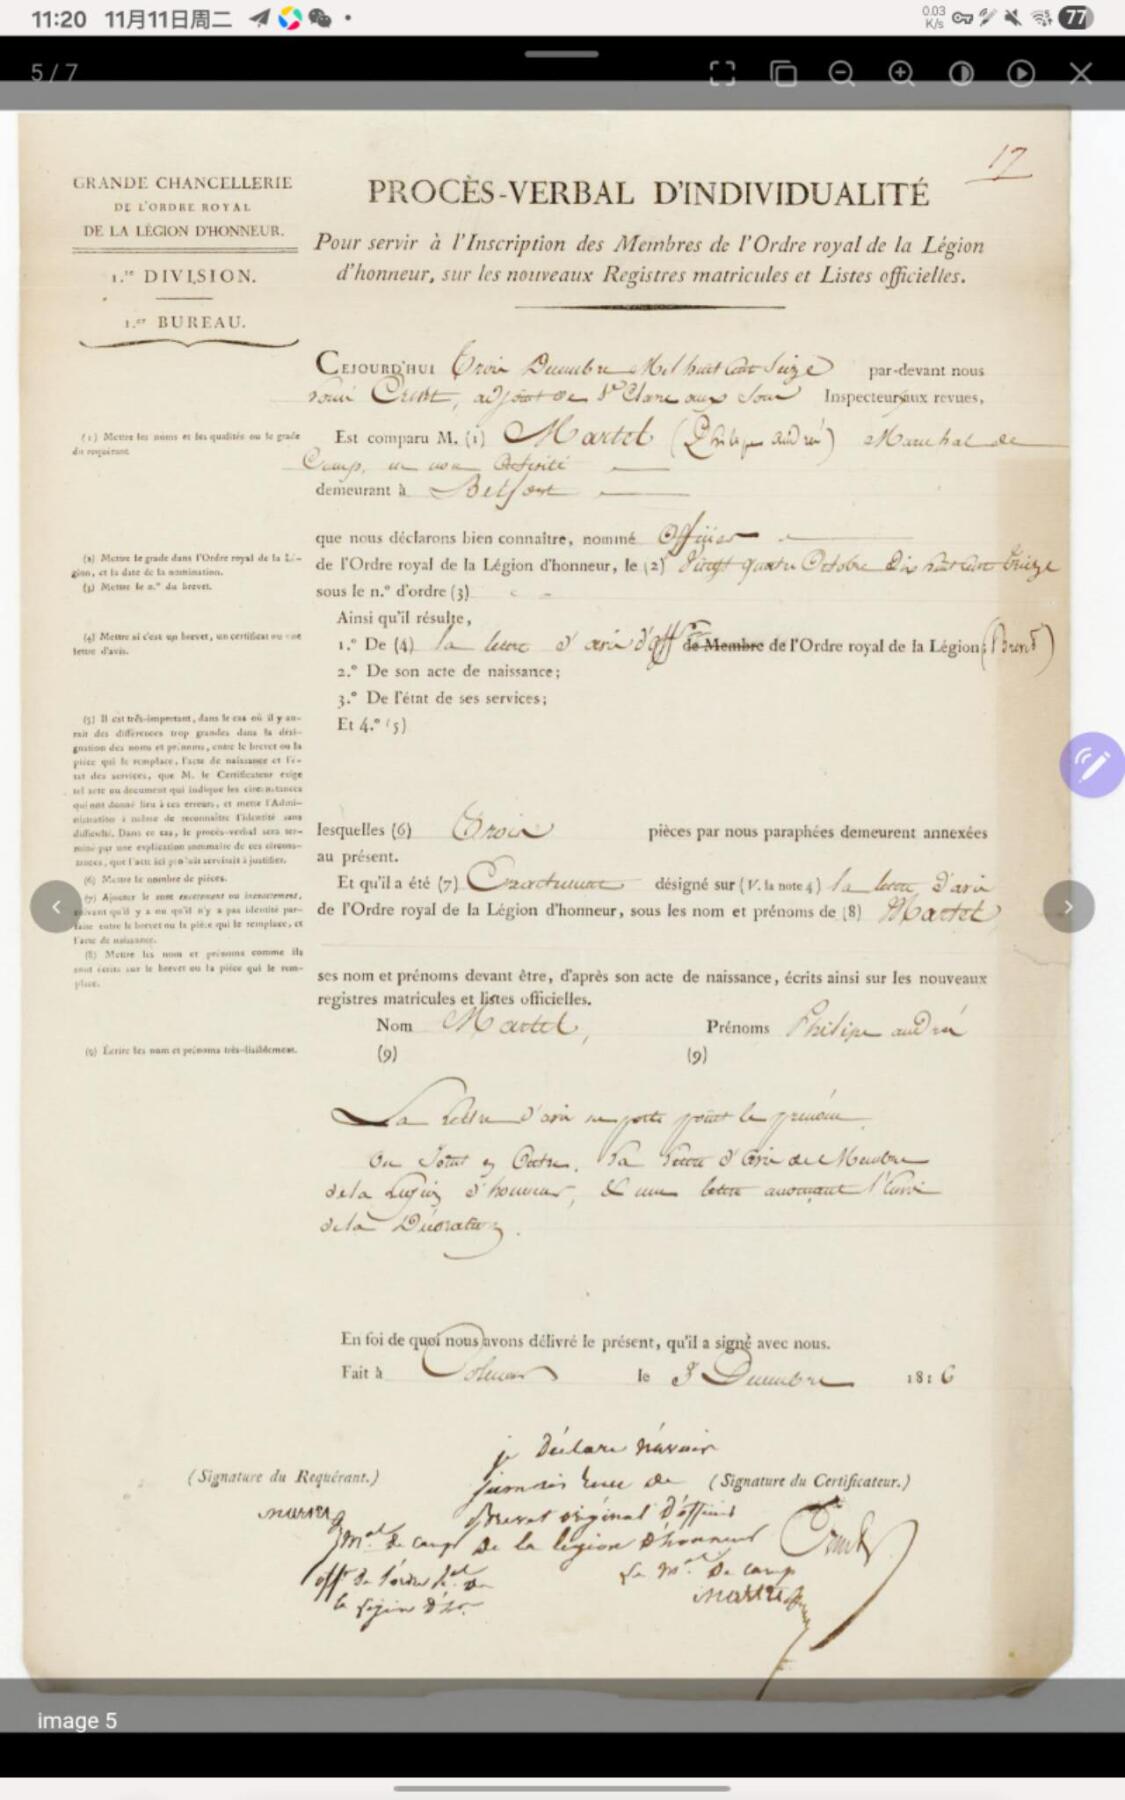 11:20 11月11日周二
0.03 K/s
77
5 / 7
17
GRANDE CHANCELLERIE
DE L'ORDRE ROYAL
DE LA LÉGION D'HONNEUR.
1.re DIVISION.
1.er BUREAU.
PROCÈS-VERBAL D'INDIVIDUALITÉ
Pour servir à l'Inscription des Membres de l'Ordre royal de la Légion
d'honneur, sur les nouveaux Registres matricules et Listes officielles.
CEJOURD'HUI Trois Decembre Mil huit Cent Seize par-devant nous
adjoint de aux Sous Inspecteurs aux revues,
(1) Mettre les noms et les qualités ou le grade
du requérant.
Est comparu M. (1) Martel (Philipe andré) Marechal de
Camp, en non Activité
demeurant à Belfort
que nous déclarons bien connaître, nommé Officier
(2) Mettre le grade dans l'Ordre royal de la Lé-
gion, et la date de la nomination.
(3) Mettre le n.° du brevet.
de l'Ordre royal de la Légion d'honneur, le (2) Vingt quatre Octobre Dix huit Cent Treize
sous le n.° d'ordre (3)
Ainsi qu'il résulte,
(4) Mettre si c'est un brevet, un certificat ou une
lettre d'avis.
1.° De (4) la lettre d'avis d'off de Membre de l'Ordre royal de la Légion;
2.° De son acte de naissance;
3.° De l'état de ses services;
Et 4.° (5)
(5) Il est très-important, dans le cas où il y au-
rait des différences trop grandes dans la dési-
gnation des noms et prénoms, entre le brevet ou la
pièce qui le remplace, l'acte de naissance et l'é-
tat des services, que M. le Certificateur exige
tel acte ou document qui indique les circonstances
qui ont donné lieu à ces erreurs, et mette l'Admi-
nistration à même de reconnaître l'identité sans
difficulté. Dans ce cas, le procès-verbal sera ter-
miné par une explication sommaire de ces circons-
tances, que l'acte ici produit servirait à justifier.
(6) Mettre le nombre de pièces.
(7) Ajouter le mot exactement ou inexactement,
suivant qu'il y a ou qu'il n'y a pas identité par-
faite entre le brevet ou la pièce qui le remplace, et
l'acte de naissance.
(8) Mettre les nom et prénoms comme ils
sont écrits sur le brevet ou la pièce qui le rem-
place.
lesquelles (6) Trois pièces par nous paraphées demeurent annexées
au présent.
Et qu'il a été (7) Exactement désigné sur (V. la note 4) la lettre d'avis
de l'Ordre royal de la Légion d'honneur, sous les nom et prénoms de (8) Martel
ses nom et prénoms devant être, d'après son acte de naissance, écrits ainsi sur les nouveaux
registres matricules et listes officielles.
Nom Martel, Prénoms Philipe andré
(9) Écrire les nom et prénoms très-lisiblement.
(9) (9)
La Lettre d'avis ne porte point le prénom
On Joint en Outre, la lettre d'avis de Membre
de la Legion d'honneur, & une lettre anonçant l'Envoi
de la Décoration.
En foi de quoi nous avons délivré le présent, qu'il a signé avec nous.
Fait à Colmar le 3 Decembre 1816
(Signature du Requérant.)
je Déclare n'avoir
jamais Recu de
Brevet original d'officier
de la légion d'honneur
(Signature du Certificateur.)
martel
m.al de camp
off.er de l'ordre R.al de
la légion d'hon.
Le m.al De camp
martel
image 5